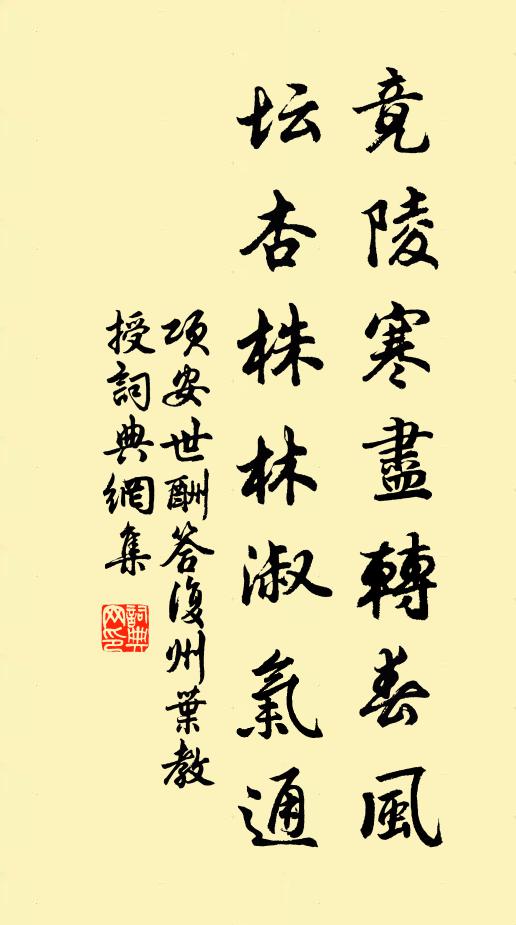 竟陵寒盡轉春風
坛杏株林淑氣通
项安世酬答復州葉教
授詞典網集
詞典網印